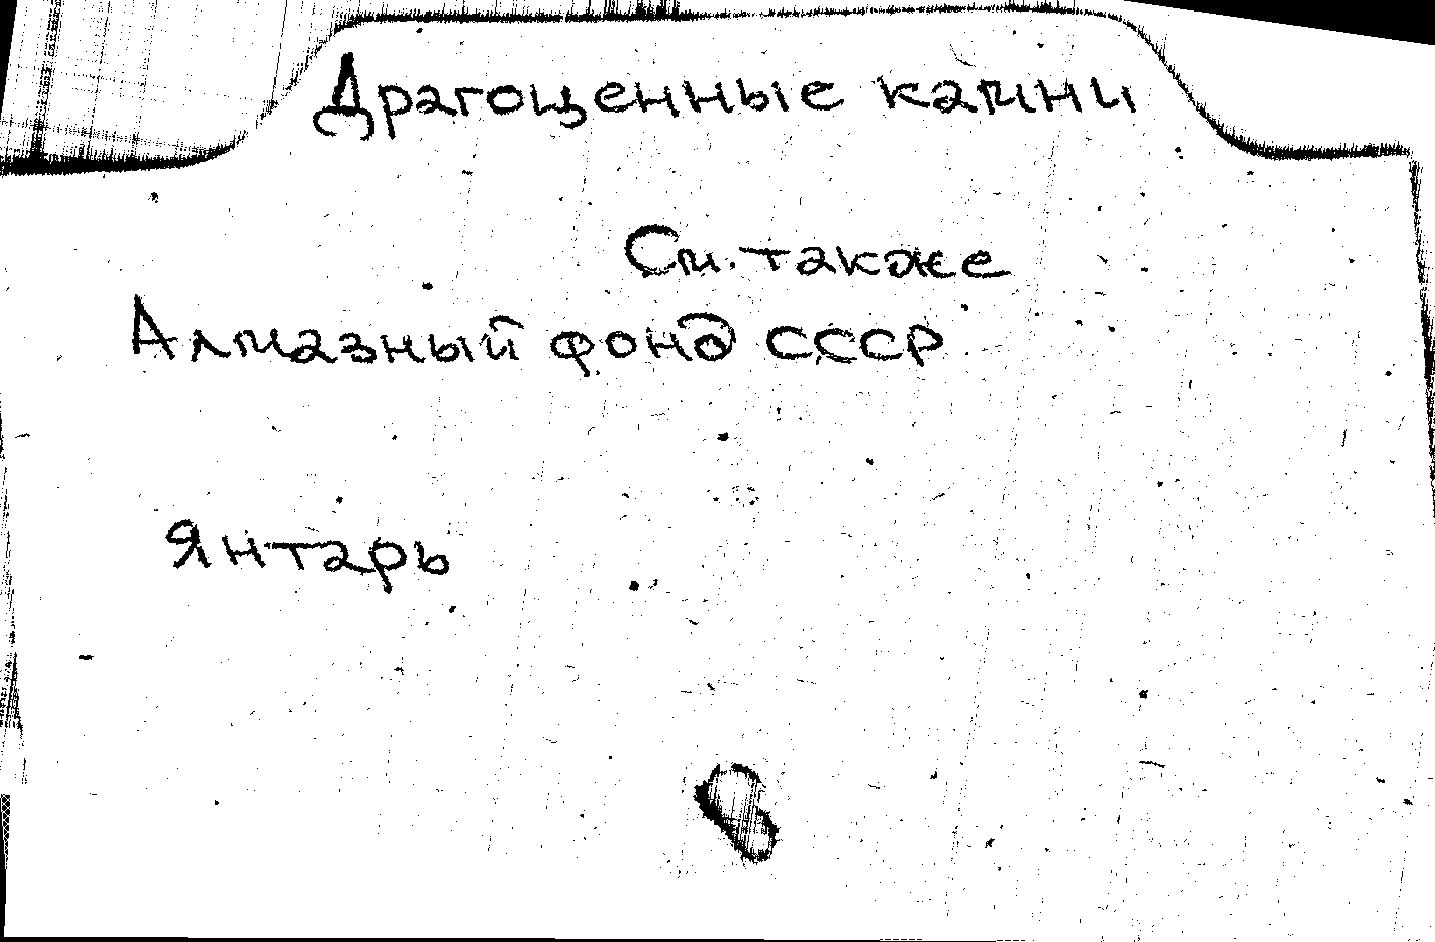 Драгоценные камни
См. также
Алмазный фонд СССР
Янтарь